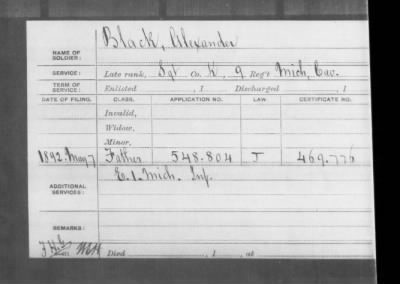 NAME OF SOLDIER: Black, Alexander
SERVICE: Late rank, Sgt Co. K, 9 Reg't Mich. Cav.
TERM OF SERVICE: Enlisted , 1 Discharged , 1
DATE OF FILING. CLASS. APPLICATION NO. LAW. CERTIFICATE NO.
Invalid,
Widow,
Minor,
1892. May 7 Father 548.804 J 469.776
ADDITIONAL SERVICES: E. 1. Mich. Inf.
REMARKS:
Died , 1 , at